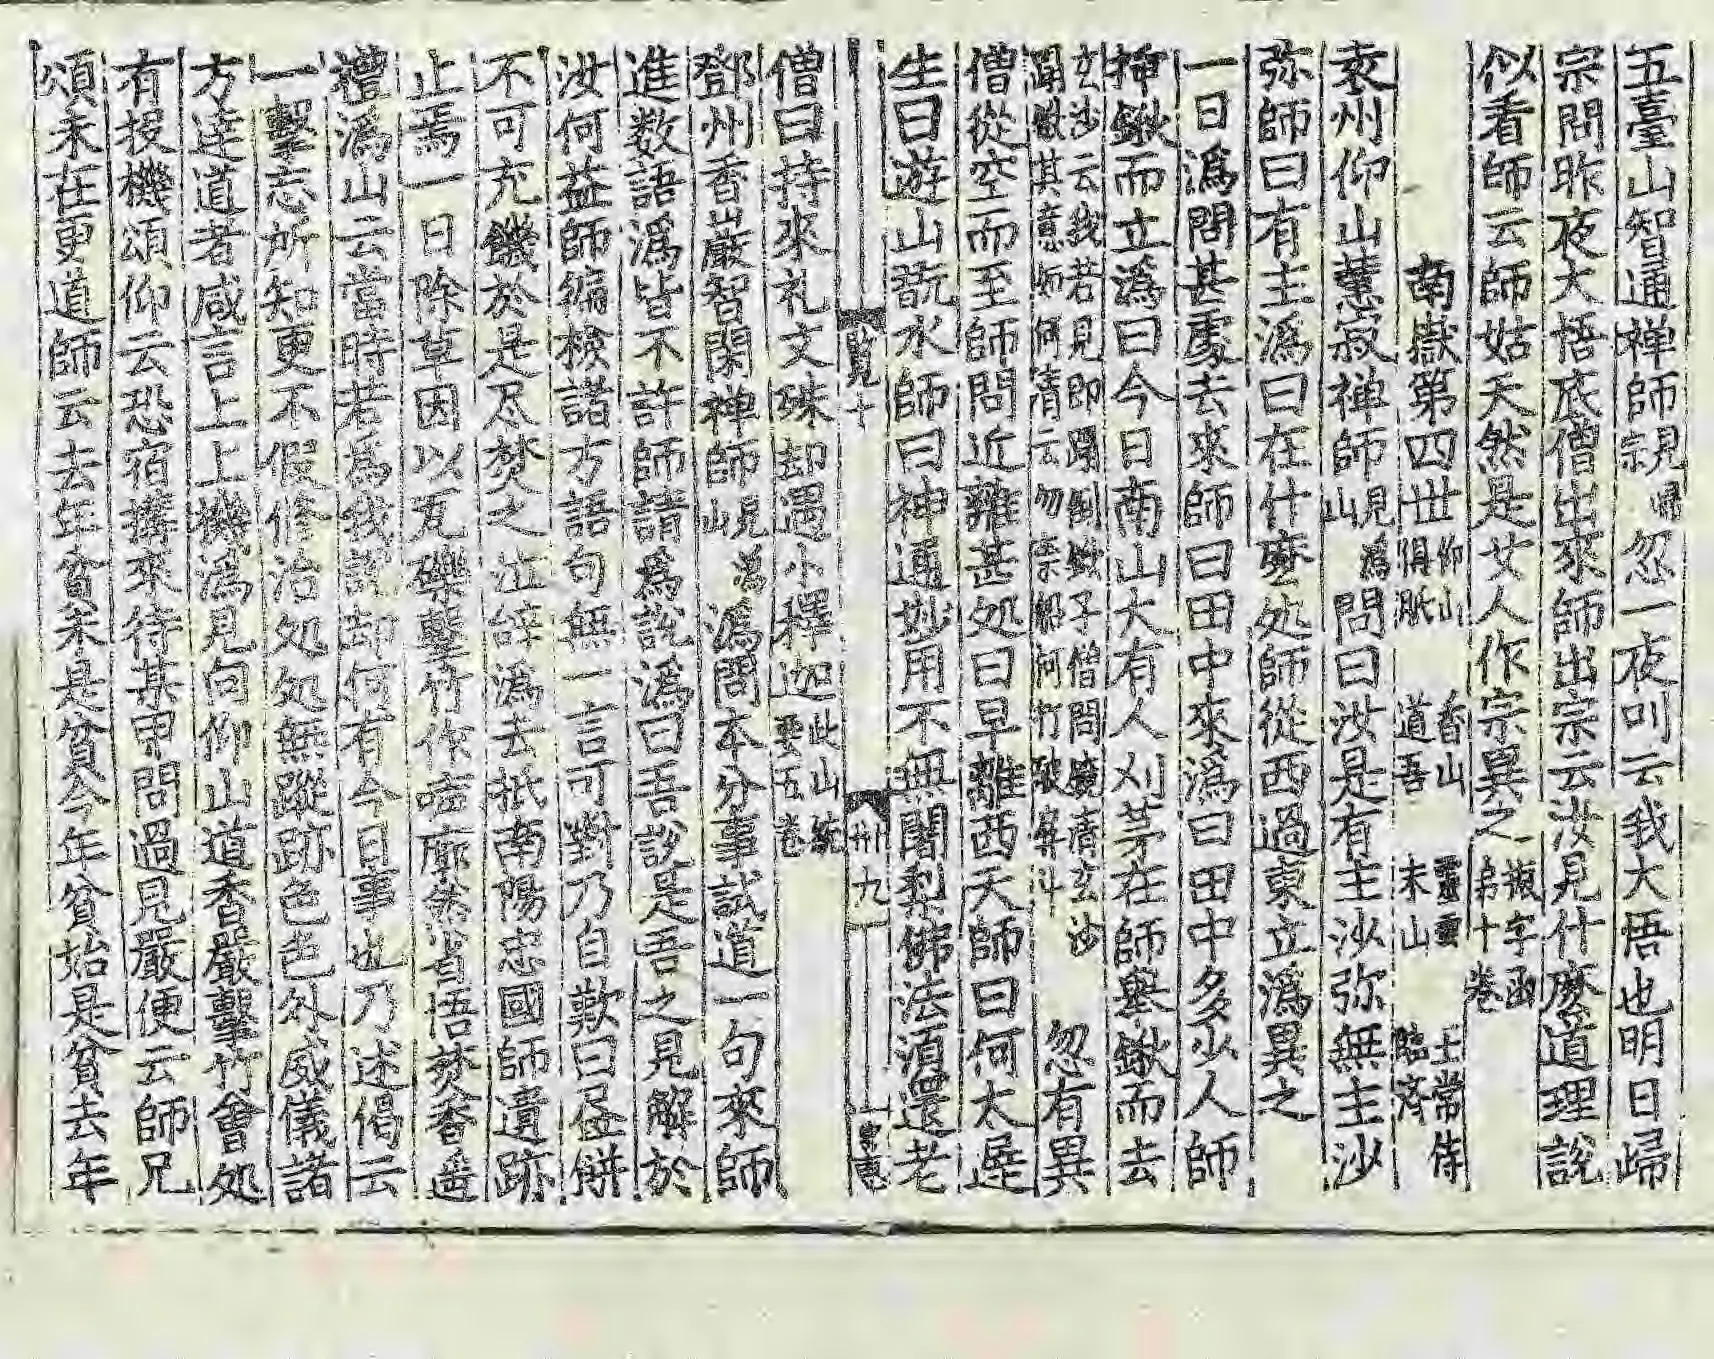 五臺山智通禅師親歸忽一夜叫云我大悟也明日歸
宗問昨夜大悟底僧出來師出宗云汝見什麼道理說
似看師云師姑天然是女人作宗異之瓶字函弟十卷
南嶽第四世仰山俱胝 香山道吾 靈雲末山 王常侍臨濟
袁州仰山慧寂禅師見山溈問曰汝是有主沙弥無主沙
弥師曰有主溈曰在什麼処師從西過東立溈異之
一日溈問甚處去來師曰田中來溈曰田中多少人師
揷鍬而立溈曰今日南山大有人刈茅在師擧鍬而去
玄沙云我若見即踢倒鍬子僧問鏡清玄沙踢鍬其意如何清云勿柰船何打破戽斗 忽有異
僧從空而至師問近離甚処曰早離西天師曰何太遲
生曰遊山翫水師曰神通玅用不無闍梨佛法須還老
僧曰持來礼文殊却遇小釋迦此山錄要五卷
鄧州香嚴智閑禅師見山溈溈問本分事試道一句來師
進数語溈皆不許師請爲說溈曰吾說是吾之見解於
汝何益師徧檢諸方語句無一言可對乃自歎曰𦘕餅
不可充饑於是尽焚之泣辞溈去抵南陽忠國師遺跡
止焉一日除草因以瓦礫擊竹作㗫廓然省悟焚香遥
禮溈山云當時若爲我說却何有今日事也乃述偈云
一擊忘所知更不假修治処処無蹤跡色色外威儀諸
方達道者咸言上上機溈見向仰山道香嚴擊竹會処
有投機頌仰云恐宿搆來待某甲問過見嚴便云師兄
頌未在更道師云去年貧未是貧今年貧始是貧去年